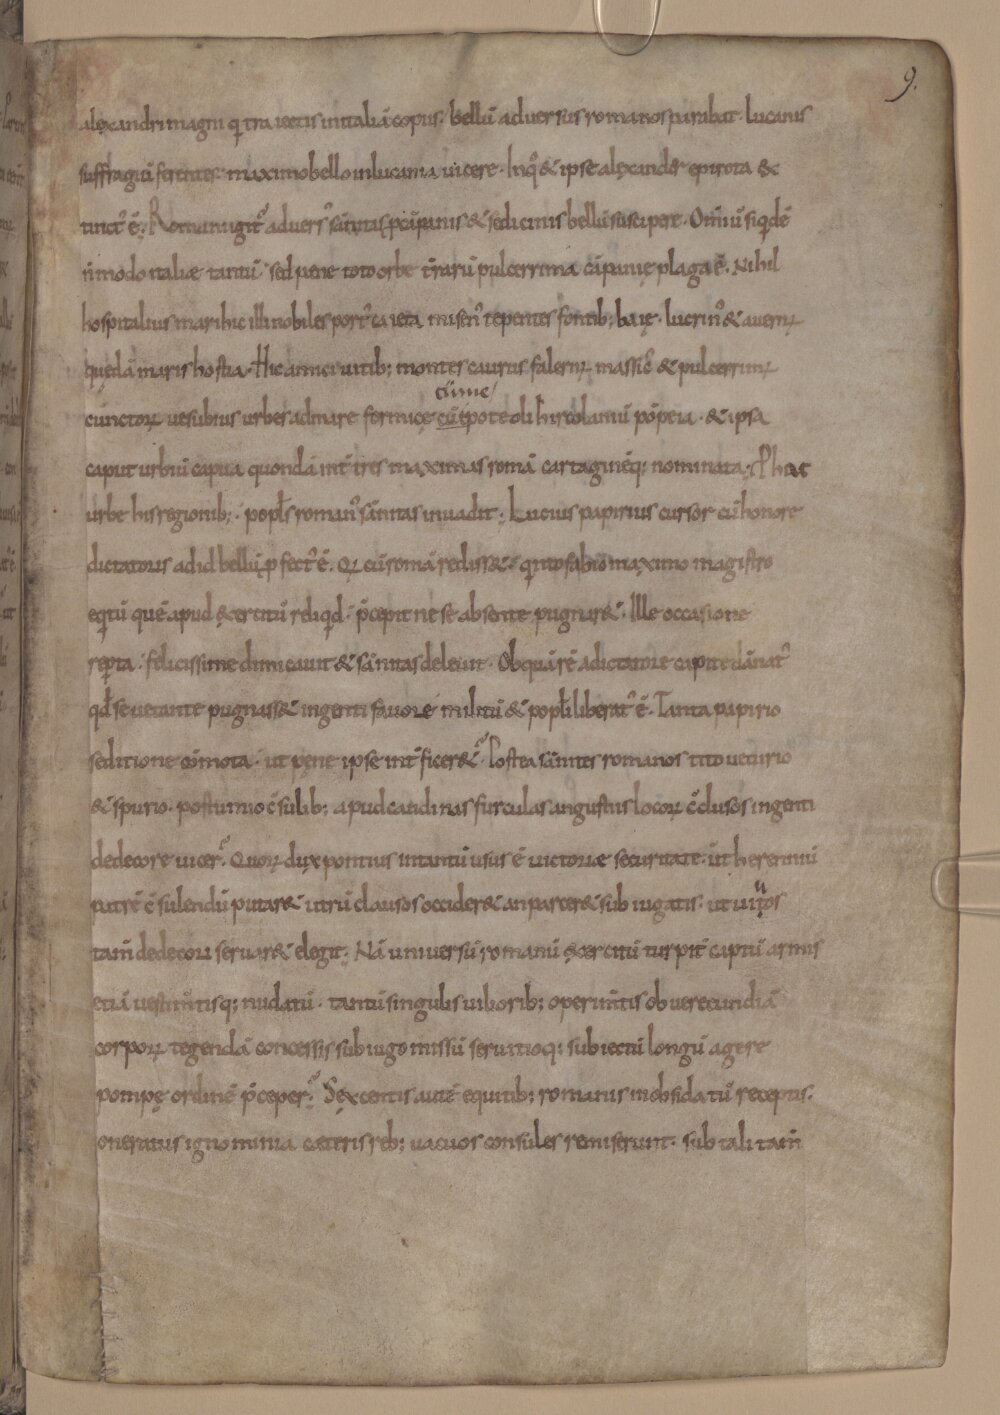 9.
alexandri magni qi traiectis initaliā copiis· bellū adversus romanos parabat· lucanis
suffragiū ferentes· maximo bello in lucania uicere· Inq° & ipse alexander epirota ex
tinct' ē· Romani igit' advers' sānitas p cāpanis & sedicinis bellū suscipere· Omniū siqdē
n̄ modo italiæ tantū· sed pene toto orbe t̄rarū pulcerrima cāpanię plaga ē· Nihil
hospitalius mari hic illi nobiles port' caieta misen' tepentes fontib; baię· lucrin' & avernꝝ
quędā maris hostia· Hic amici uitib; montes caurus falernꝝ massic' & pulcerrimꝝ
cūme
cunctoꝝ uesubius urbes ad mare formice cūę poteoli hircolaniū pōpeia· & ipsa
caput urbiū capua quondā int̄ tres maximas romā cartaginēq; nominata· P hac
urbe his regionib;· popl̄s roman' sānitas inuadit· Lucius papirius cursor cū honore
dictatoris ad id bellū p fect' ē· Qꝝ cū romā rediss&· quinto fabio maximo magistro
equitū quē apud exercitū reliqd· p̄cepit ne se absente pugnar&· Ille occasione
rep̱ta· felicissime dimicauit & sānitas deleuit· Ob quā rē a dictatore capite dānat'
qd̄ se uetante pugnass& ingenti favore militū & popl̄i liberat' ē· Tanta papirio
seditione cōmota· ut pęne ipse int̄ficer&· Postea sānites romanos tito ueturio
& spurio· postumio c̄sulib; apud caudinas furculas angustiis locoꝝ c̄clusos ingenti
dedecore uicer̄· Quoꝝ dux pontius in tantū usus ē uictoriæ securitate· ut herenniū
patrē c̄sulendū putar& utrū clausos occider& an parcer& subiugatis· ut uiuos
tam̄ dedecori servar& elegit· Nā universū romanū exercitū turpit̄ captū armis
etiā uestim̄tisq; nudatū· tantū singulis uiliorib; operim̄tis ob uerecundiā
corpoꝝ tegendā concessis sub iugo missū servitioq; subiectū longū agere
pompę ordinē p̄ceper̄· Sexcentis autē equitib; romanis in obsidatū receptis·
oneratus ignominia cæteris reb; uacuos consules remiserunt· sub tali tam̄